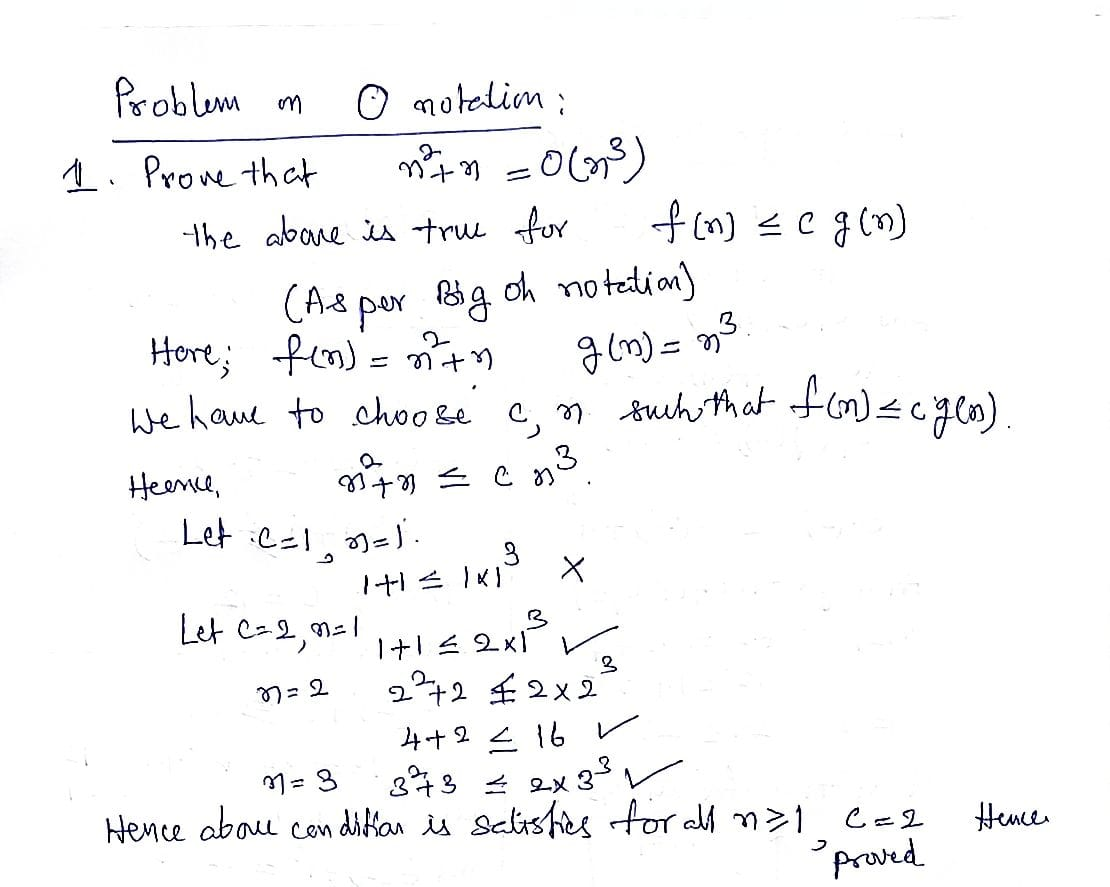 Problem on O notation:
1. Prove that n²+n = O(n³)
the above is true for f(n) ≤ c g(n)
(As per Big oh notation)
Here; f(n) = n²+n g(n) = n³.
We have to choose c, n such that f(n) ≤ c g(n).
Heence, n²+n ≤ c n³.
Let c=1, n=1.
1+1 ≤ 1×1³ ×
Let c=2, n=1 1+1 ≤ 2×1³ ✓
n=2 2²+2 ≤ 2×2³
4+2 ≤ 16 ✓
n=3 3²+3 ≤ 2×3³ ✓
Hence above condition is satisfies for all n≥1, c=2 Hence
proved